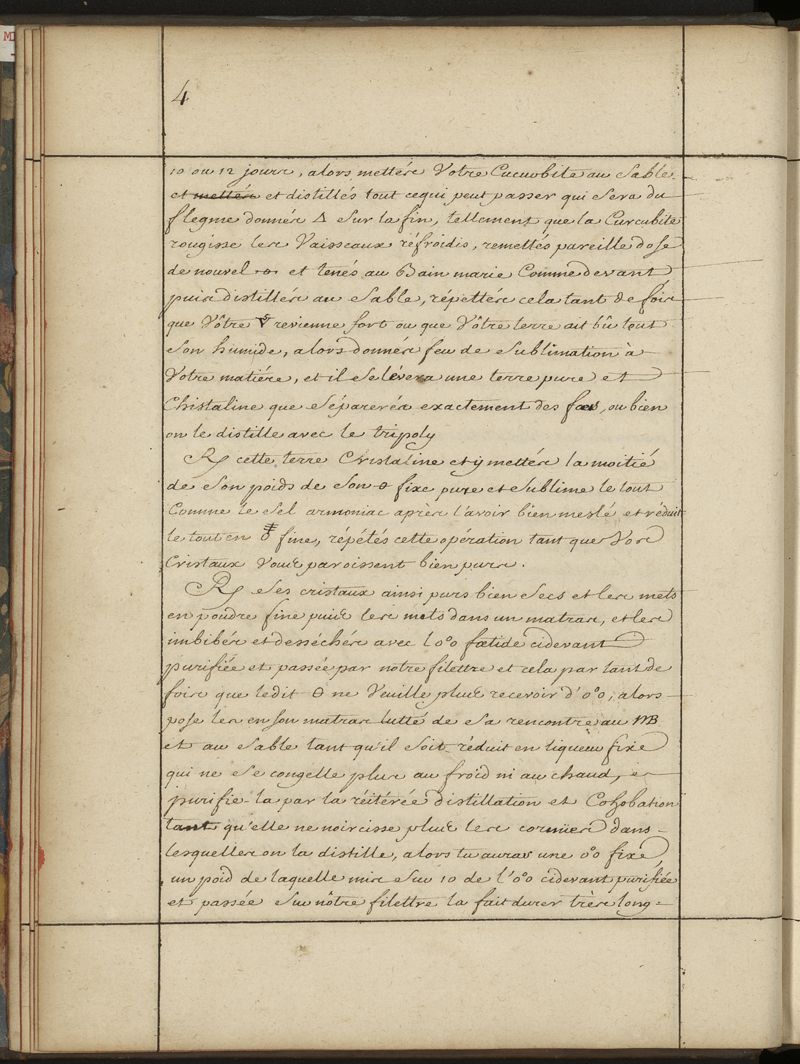 4
10 ou 12 jours, alors mettés Votre Cucurbite au Sable
et mettés et distillés tout cequi peut passer qui Sera du
flegme donnés △ Sur la fin, tellement que la Curcubite
rougisse les Vaisseaux réfroidis, remettés pareille dose
de nouvel et tenés au Bain marie Comme devant
puis distillés au Sable, répettés cela tant de fois
que Vôtre revienne fort ou que Vôtre terre ait bû tout
Son humide, alors donnés feu de Sublimation à
Votre matiére, et il Se lévera une terre pure et
Christaline que Séparerés exactement des fæces, ou bien
on le distille avec le tripoly
℞ cette terre Cristaline et ÿ mettés la moitié
de Son poids de Son fixe pure et Sublime le tout
Comme le Sel armoniac après l'avoir bien meslé et réduit
le tout en fine, répétés cette opération tant que Vos
Cristaux Vous paroissent bien purs.
℞ Ses cristaux ainsi purs bien Secs et les mets
en poudre fine puis les mets dans un matras, et les
imbibés et desséchés avec l'o°o fœtide cidevant
purifiée et passée par nôtre filettre et cela par tant de
fois que ledit Θ ne Veuille plus recevoir d'o°o, alors
pose les en Son matras lutté de Sa rencontre au MB
et au Sable tant qu'il Soit réduit en liqueur fixe
qui ne Se congelle plus au froid ni au chaud, et
purifie-la par la réitérée distillation et Cohobation
tant qu'elle ne noircisse plus les cornües dans
lesquelles on la distille, alors tu auras une o°o fixe
un poid de laquelle mis Sur 10 de l'o°o cidevant purifiée
et passée Sur nôtre filettre la fait durer très long=